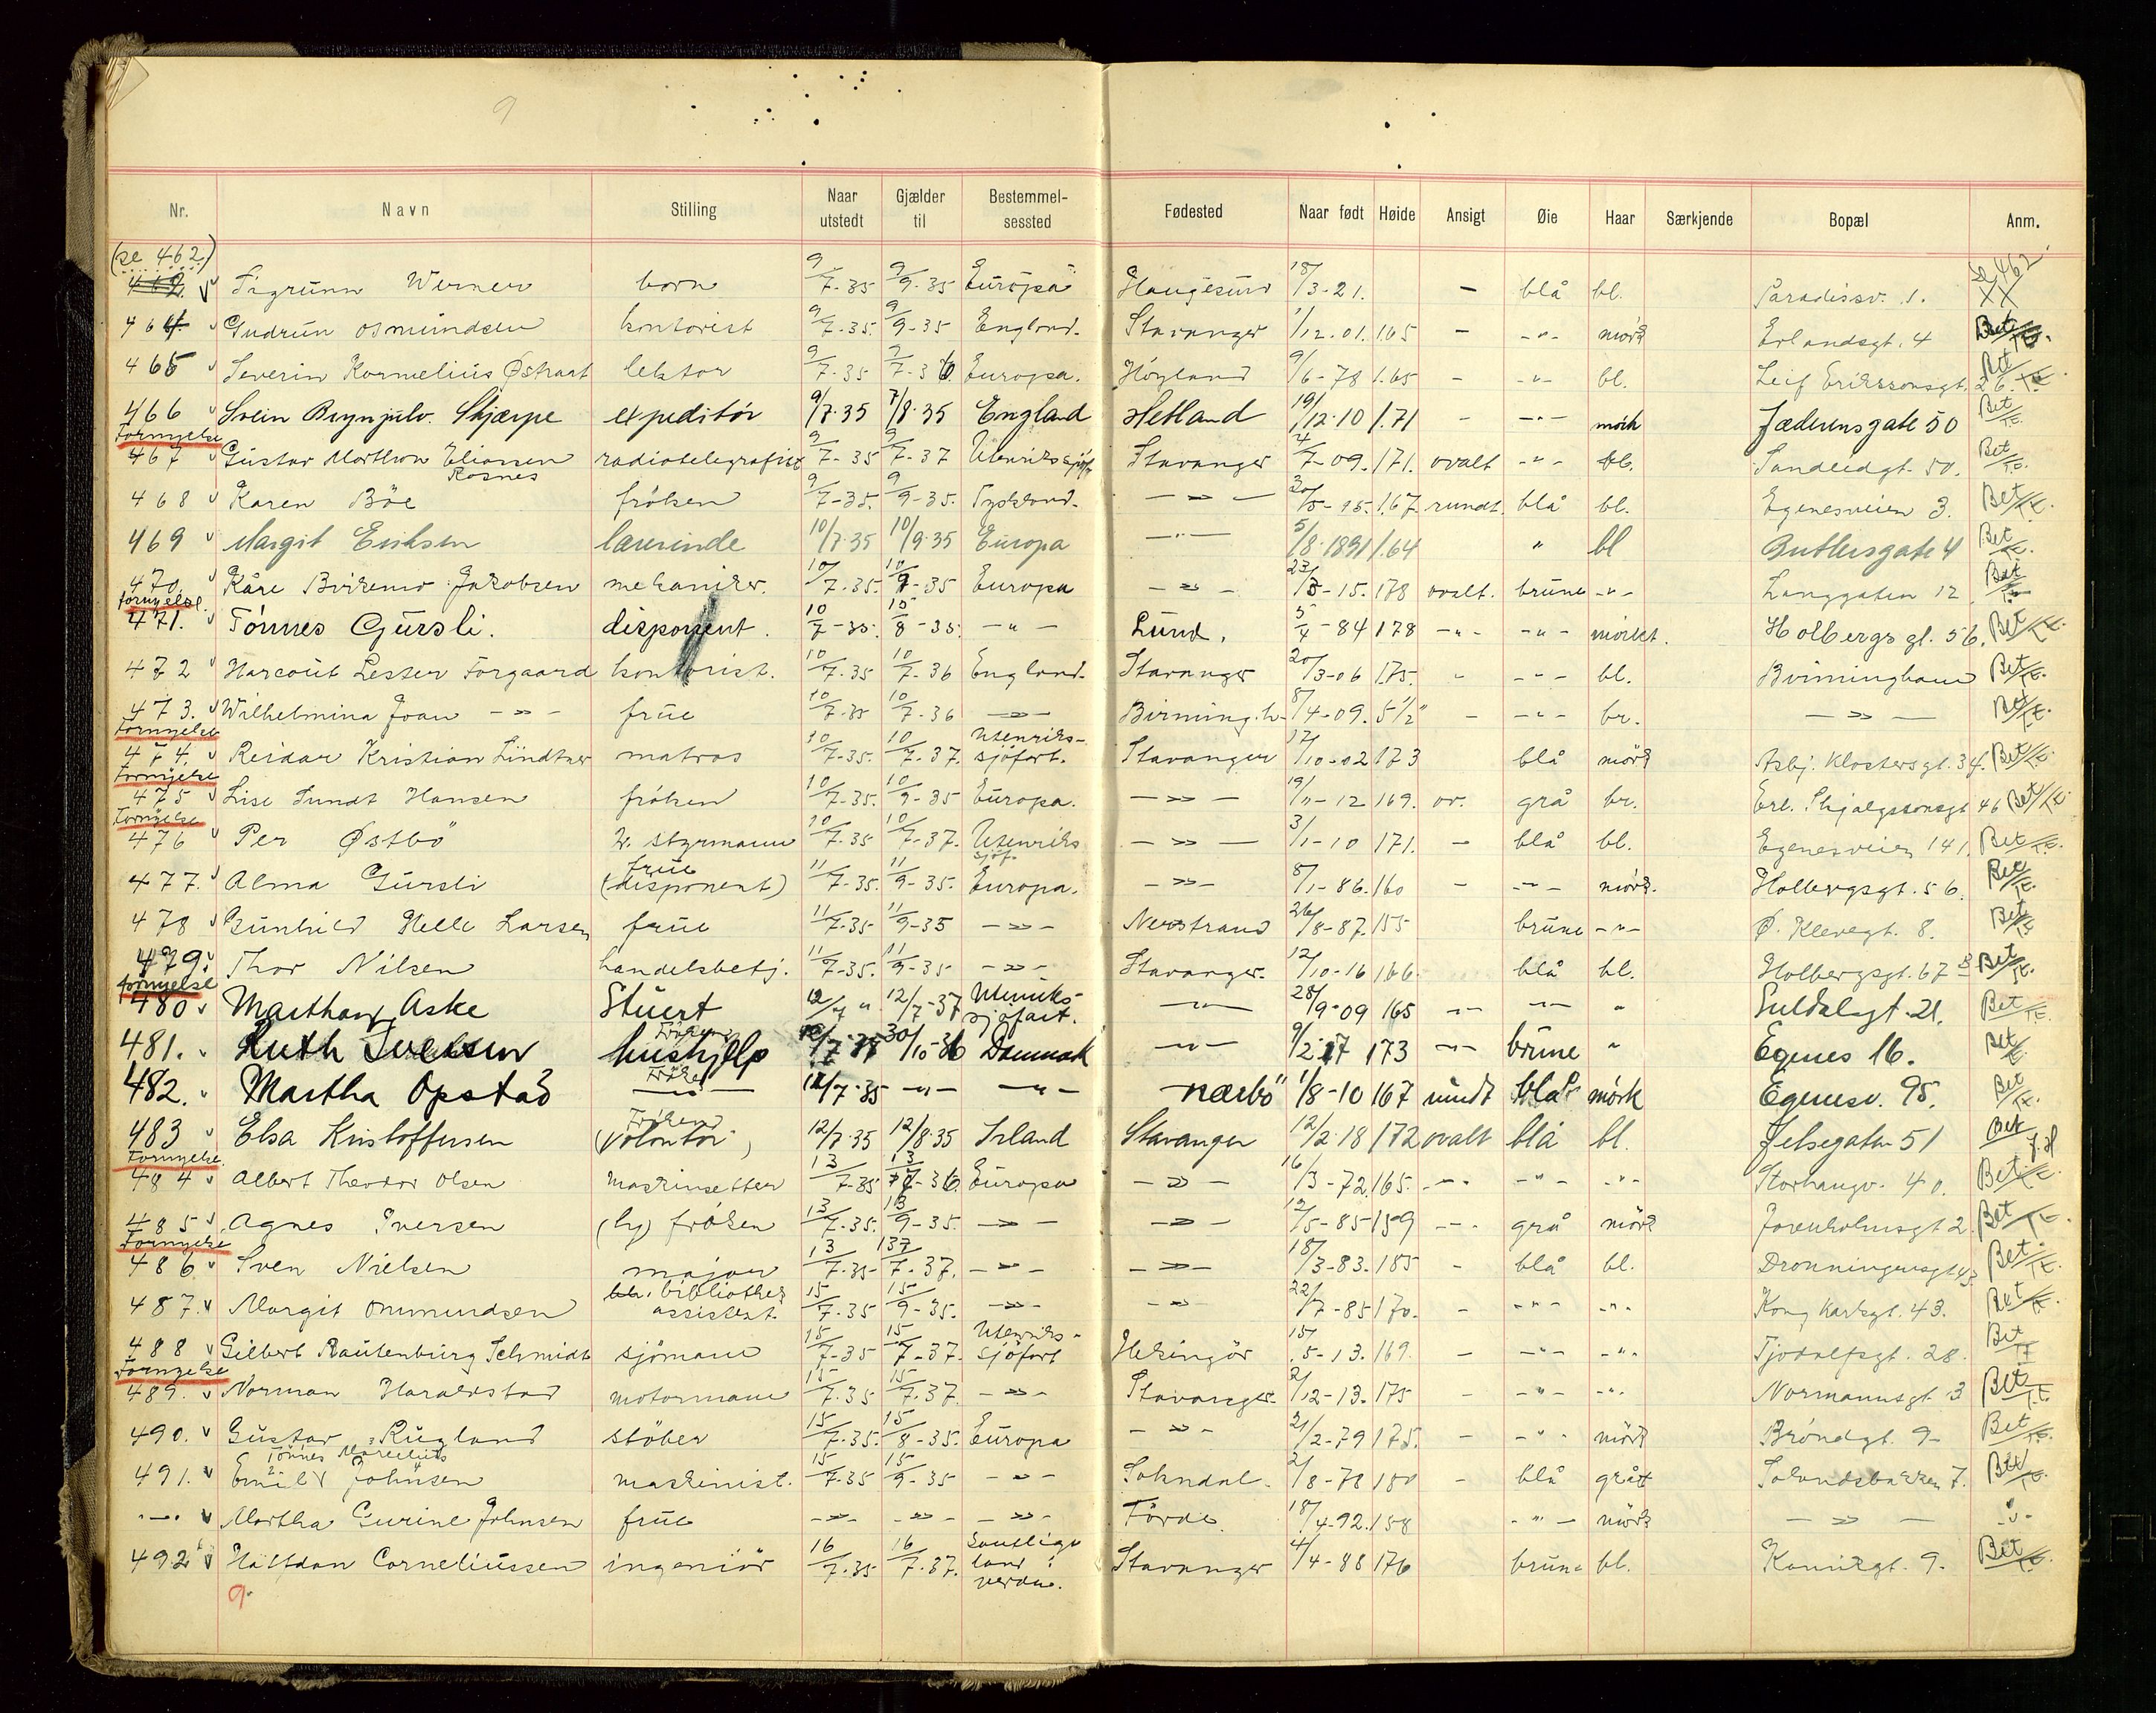 9
Nr. Navn Stilling Naar utstedt Gjælder til Bestemmelsessted Fødested Naar født Høide Ansigt Øie Haar Særkjende Bopæl Anm.
(se 462) se 462
Sigrunn Werner born 9/7-35 9/9-35 Europa Haugesund 18/3-21. - blå bl. Paradissv. 1. XX
464 Gudrun Osmundsen kontorist 9/7-35. 9/9-35 England. Stavanger 1/12.01. 1.65 - -"- mørk Erlandsgt. 4 Bet
465 Severin Kornelius Østraat lektor 9/7-35 9/7-36 Europa. Høyland 9/6-78 1.65 - -"- bl. Leif Erikssonsgt. 26. Bet
466 Svein Brynjulv. Skjærpe expeditör 9/7.35 7/8.35 England Hetland 19/12-10 1.71 - -"- mörk Jæderensgate 50 Bet
Fornyelse
467 Gustav Morthon Eliassen Rosnes radiotelegrafist 9/7-35 9/7-37 Utenrikssjøf. Stavanger 4/7-09. 171. ovalt -"- bl. Sandeidgt. 50. Bet
468 Karen Böe fröken 9/7-35. 9/9-35. Tyskland. -"- 30/5-15. 1.67. rundt. blå bl. Egenesveien 3. Bet
469 Margit Eriksen lærerinde 10/7.35 10/9.35 Europa -"- 5/8.1891 1.64 " bl Butlersgate 4 Bet
470. Kåre Birkemo Jakobsen mekaniker. 10/7.35. 10/9-35 Europa -"- 23/5-15. 178 ovalt. brune -"- Langgaten 12 Bet
fornyelse.
471. Tönnes Gursli. disponent. 10/7-35. 10/8-35. -"- Lund. 5/4-84 178 -"- -"- mörkt. Holbergsgt. 56. Bet
472 Harcout Lester Torgaard kontorist. 10/7.35 10/7.36 England. Stavanger 20/3-06 175. " -"- bl. Birmingham Bet
473. Wilhelmina Joan -"- frue 10/7-35 10/7-36 -"- Birmingh. 8/4-09. 5½" - -"- br. -"- Bet
Fornyelse
474. Reidar Kristian Lindtner matros 10/7-35. 10/7.37. Utenriks-sjöfart. Stavanger 17/10-02 173 blå mörk Asbj. Klostersgt. 34. Bet
Fornyelse
475 Lise Sundt Hansen fröken 10/7-35. 10/9-35 Europa. -"- 19/11-12 169. ov. grå br. Erl. Skjalgssonsgt 46 Bet
Fornyelse
476 Per Østbö 2. styrmann 10/7-35 10/7-37. Utenriks sjöf. -"- 3/1-10 171. - blå bl. Egenesveien 141. Bet
477. Alma Gursli frue (disponent) 11/7-35. 11/9-35. Europa. -"- 8/1-86. 160 - -"- mörk. Holbergsgt. 56. Bet
478 Gunhild Helle Larsen frue 11/7-35 11/9-35 -"- Nerstrand 26/8-87. 155 brune -"- Ø. Klevegt. 8. Bet
479. Thor Nilsen handelsbetj. 11/7-35. 11/9-35 -"- Stavanger. 12/10-16 166. blå bl. Holbergsgt. 67 B Bet
fornyelse
480 Marthon Aske Stuert 12/7 " 12/7-37 Utenriks-sjöfart. -"- 28/9-09 165 -"- -"- " Suldalsgt. 21. Bet
481. Ruth Iversen Fröken hushjelp 12/7.35 30/10-36 Danmark -"- 9/2.17 173 -"- brune " Egenes 16. Bet
482. Martha Opstad Fröken -"- 12/7-35 -"- -"- nærbö 1/8-10 167 rundt blå mörk Egenesv. 95. Bet
483 Elsa Kristoffersen Fröken (volontör) 12/7.35 12/8.35 Irland Stavanger 12/2-18 172 ovalt blå bl. Jelsegaten 51 Bet
Fornyelse
484 Albert Theodor Olsen maskinsetter 13/7-35 13/7-36. Europa -"- 16/3-72. 165. -"- -"- -"- Storhaugv. 40. Bet
485 Agnes Iversen fröken 13/7.35. 13/9-35. -"- -"- 12/5-85 159 -"- grå mörk 2. Bet
Fornyelse
486 Sven Nielsen major 13/7-35 13/7-37. -"- -"- 18/3-83. 185 - blå bl. Dronningensgt 43 Bet
487. Margit Ommundsen bibliothek assistent. 15/7-35 15/9-35. -"- -"- 22/7-85 170. - -"- -"- Kong Karlsgt. 43. Bet
488 Gilbert Rautenburg Schmidt sjömann 15/7-35 15/7-37. Utenriks-sjöfart Helsingör 15/5-13. 169. - -"- -"- Tjodolfsgt. 28. Bet
Fornyelse
489. Norman Haraldstad motormann 15/7.35 15/7.37. -"- Stavanger 2/12-13. 175 - -"- -"- Normannsgt 3 Bet
490. Gustav Rugland stöber 15/7-35. 15/8-35. Europa -"- 21/2-79 175. - -"- mörk Bröndgt. 9- Bet
491. Emil Tönnes Marcelius Johnsen maskinist. 15/7-35 15/9-35 -"- Sokndal. 2/8-78 180 - blå grått 7. Bet
-"- Martha Gurine Johnsen frue -"- -"- -"- Förde 18/4-92. 158 -"- mörk -"- -"-
492 Halfdan Corneliussen ingeniör 16/7.35 16/7.37. Samtlige land i verden. Stavanger 4/4-88 176 brune bl. Kannikgt. 9. Bet
9.